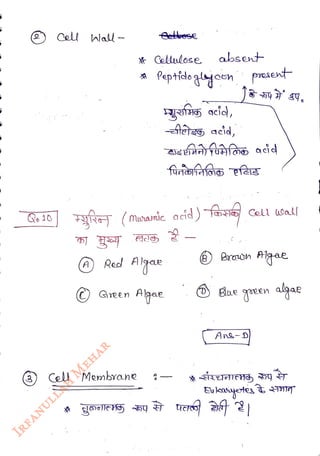 ② Cell Wall - Cellulose
* Cellulose absent
* Peptidoglycon present
↑ के रूप में उप.
म्युरामिक acid,
टीकोइक acid,
डाइएमिनोपिमेलिक acid
Qe 10 म्युरिन (Muramic acid) किसकी Cell Wall
का मुख्य घटक है —
Ⓐ Red Algae Ⓑ Brown Algae
Ⓒ Green Algae Ⓓ Blue green algae
Ans - D
③ Cell Membrane :- * संरचनात्मक रूप से
Eukaryotes के समान
* तुलनात्मक रूप से पतली होती है।
IRFANULLAH MEHAR